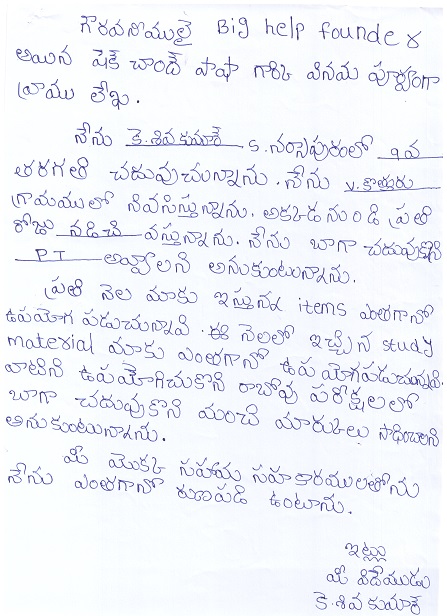 గౌరవనీయులై Big help founder
అయిన షేక్ చాంద్ పాషా గారికి వినయ పూర్వకంగా
వ్రాయు లేఖ.
నేను కె.శివకుమార్ S.నర్సాపురంలో 9వ
తరగతి చదువుచున్నాను. నేను V.కొత్తూరు
గ్రామములో నివసిస్తున్నాను. అక్కడ నుండి ప్రతి
రోజు నడిచి వస్తున్నాను. నేను బాగా చదువుకొని
PT అవ్వాలని అనుకుంటున్నాను.
ప్రతి నెల మాకు ఇస్తున్న items ఎంతగానో
ఉపయోగ పడుచున్నావి. ఈ నెలలో ఇచ్చిన study
material మాకు ఎంతగానో ఉపయోగపడుచున్నవి.
వాటిని ఉపయోగించుకొని రాబోవు పరీక్షలలో
బాగా చదువుకొని మంచి మార్కులు సాధించాలని
అనుకుంటున్నాను.
మీ యొక్క సహాయ సహకారములతోను
నేను ఎంతగానో రుణపడి ఉంటాను.
ఇట్లు
మీ విధేయుడు
కె.శివ కుమార్